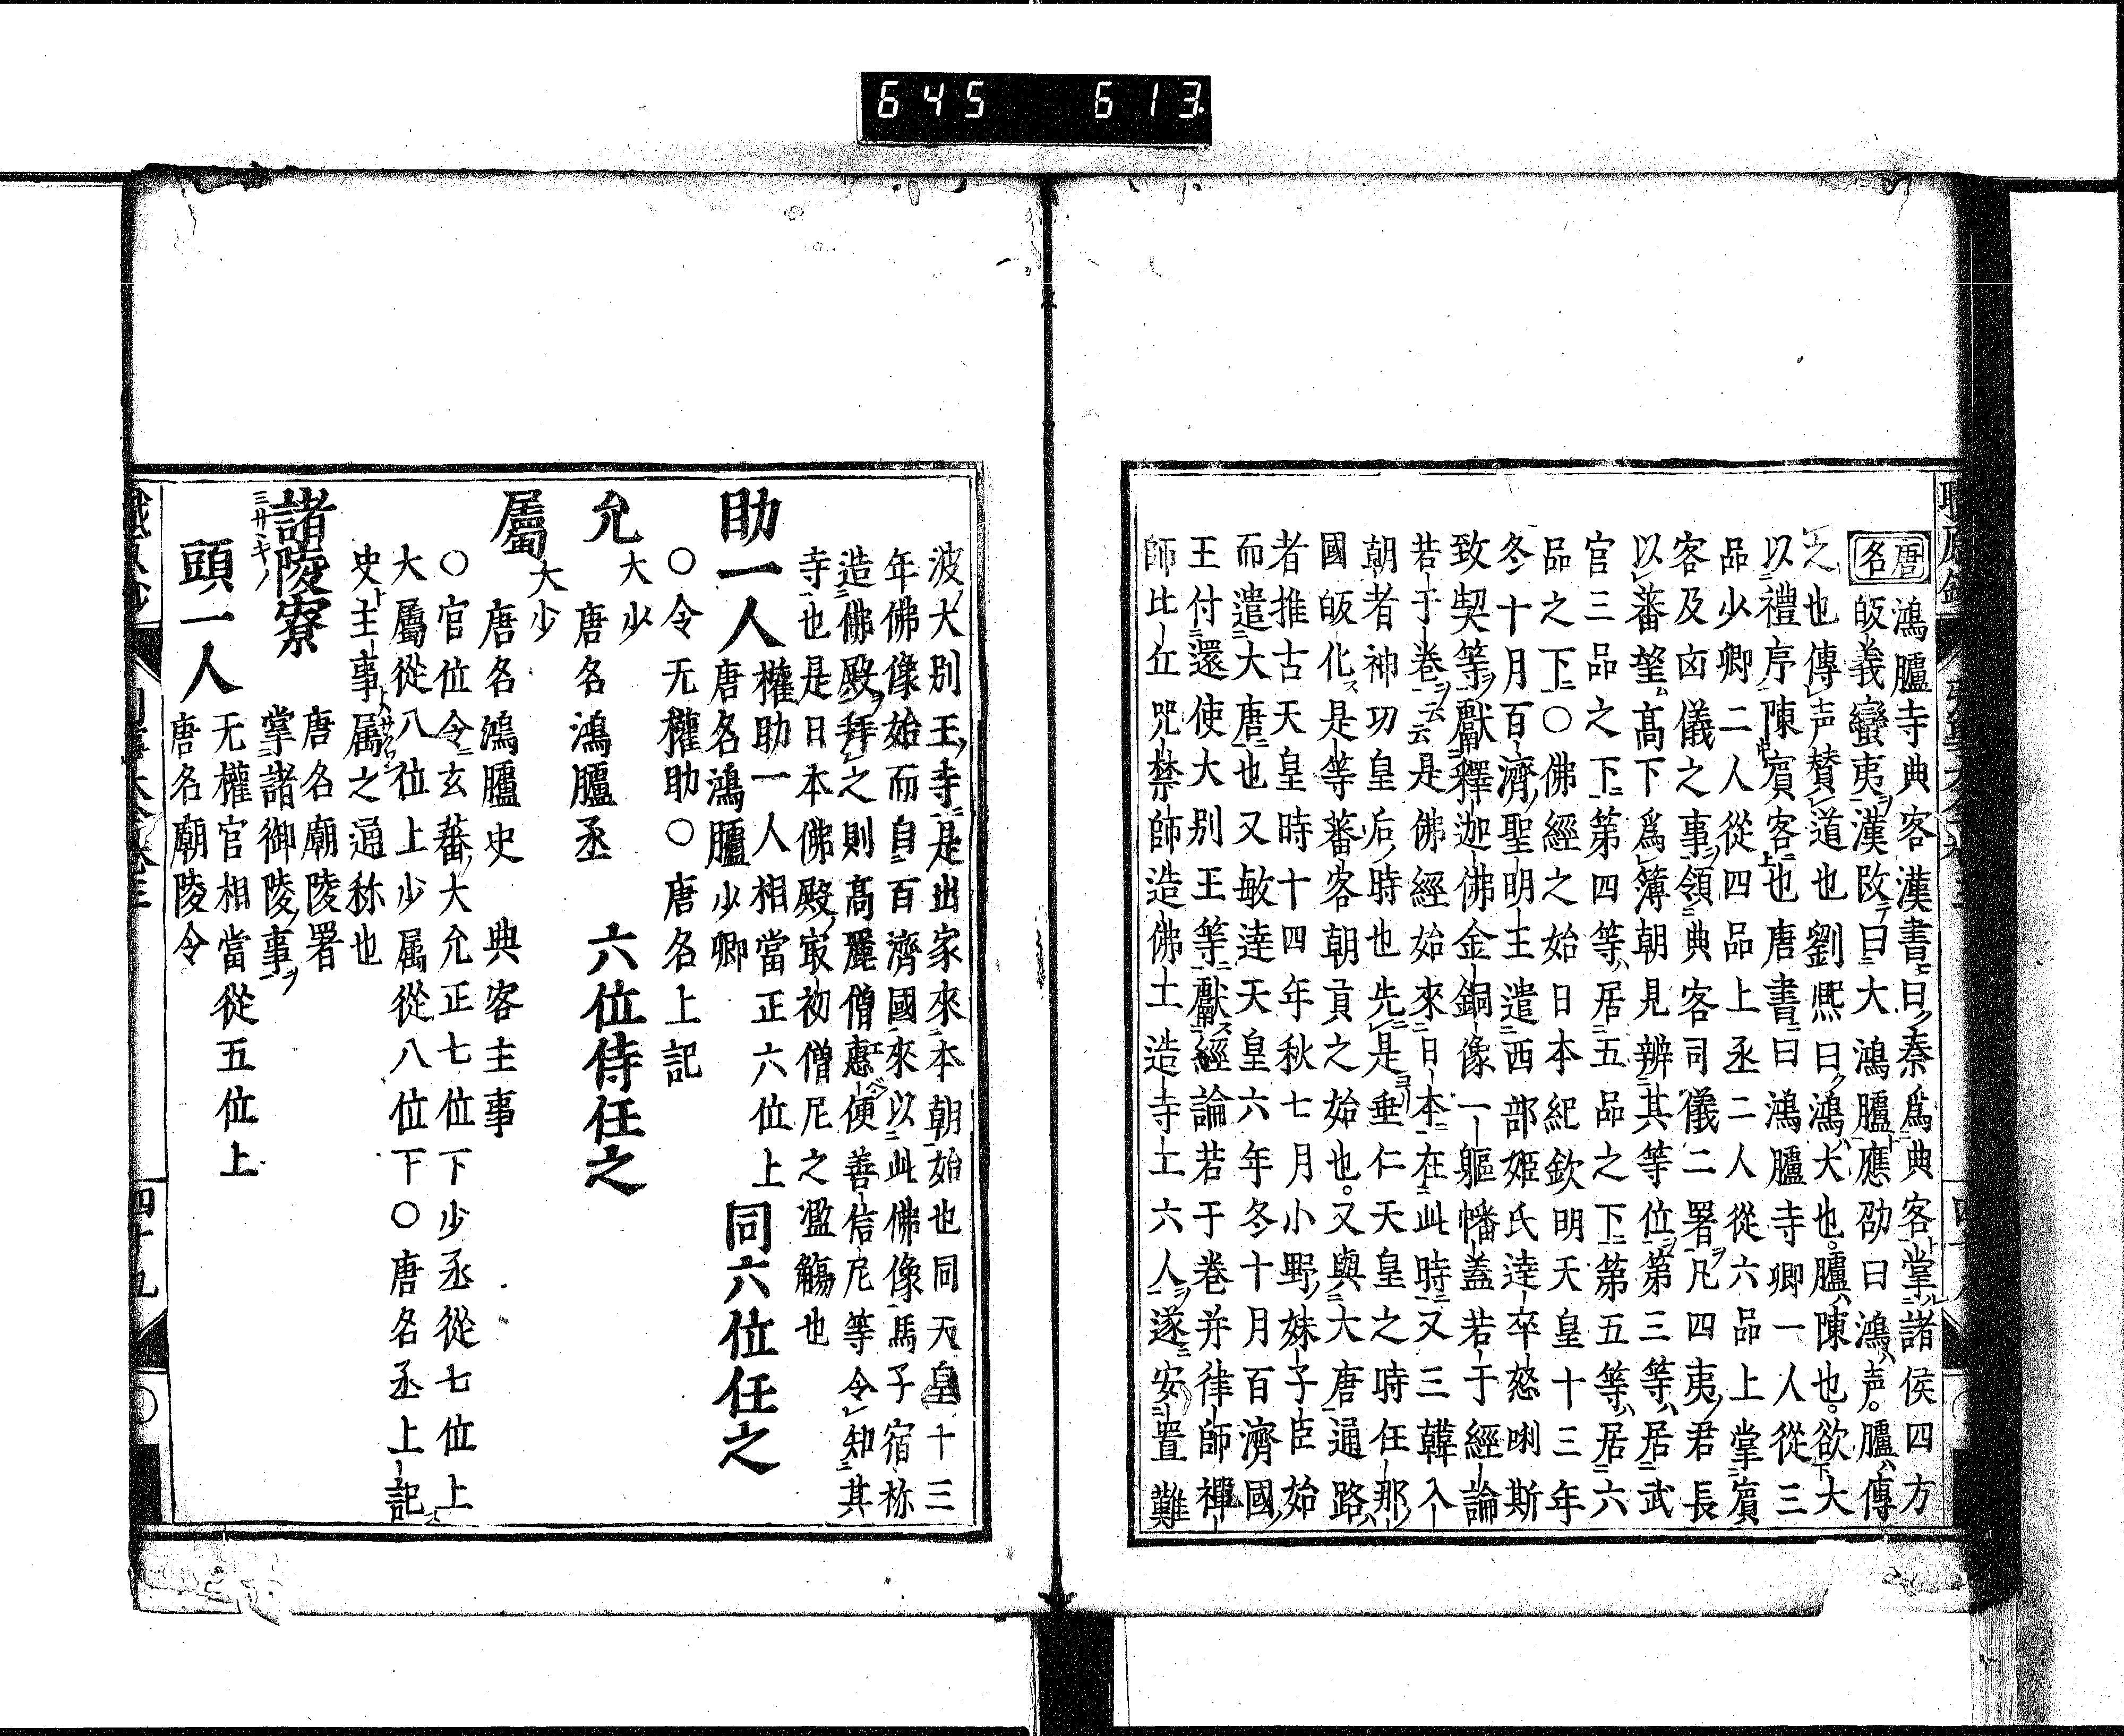 645 613
唐名
鴻臚寺典客漢書曰秦爲典客掌諸侯四方
皈義蠻夷漢改曰大鴻臚應劭曰鴻声臚傳
之也傳声賛道也劉熈曰鴻大也臚陳也欲大
以禮序陳賓客也唐書曰鴻臚寺卿一人從三
品少卿二人從四品上丞二人從六品上掌賓
客及凶儀之事領典客司儀二署凡四夷君長
以蕃望高下爲簿朝見辨其等位第三等居武
官三品之下第四等居五品之下第五等居六
品之下〇佛經之始日本紀欽明天皇十三年
冬十月百濟聖明王遣西部姫氏達卒怒唎斯
致契等獻釋迦佛金銅像一軀幡蓋若于經論
若于巻云云是佛經始來日本在此時又三韓入
朝者神功皇后時也先是垂仁天皇之時任那
國皈化是等蕃客朝貢之始也又與大唐通路
者推古天皇時十四年秋七月小野妹子臣始
而遣大唐也又敏達天皇六年冬十月百濟國
王付還使大別王等獻經論若于巻并律師禅
師比丘咒禁師造佛工造寺工六人遂安置難
波大別王寺是出家來本朝始也同天皇十三
年佛像始而自百濟國來以此佛像馬子宿祢
造佛殿拜之則高麗僧惠便善信尼等令知其
寺也是日本佛殿最初僧尼之濫觴也
助一人 權助一人相當正六位上 同六位任之
唐名鴻臚少卿
〇令无權助〇唐名上記
允 大少 唐名鴻臚丞 六位侍任之
屬 大少 唐名鴻臚史 典客主事
〇官位令玄蕃大允正七位下少丞從七位上
大屬從八位上少属從八位下〇唐名丞上記
史主事属之通称也
諸陵寮 唐名廟陵署
三サヽキノ 掌諸御陵事
頭一人 无權官相當從五位上
唐名廟陵令
四十九